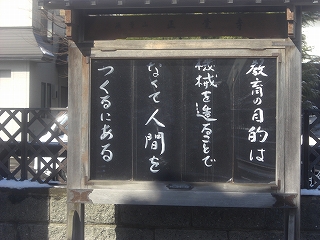 教育の目的は
機械を造ることで
なくて人間を
つくるにある